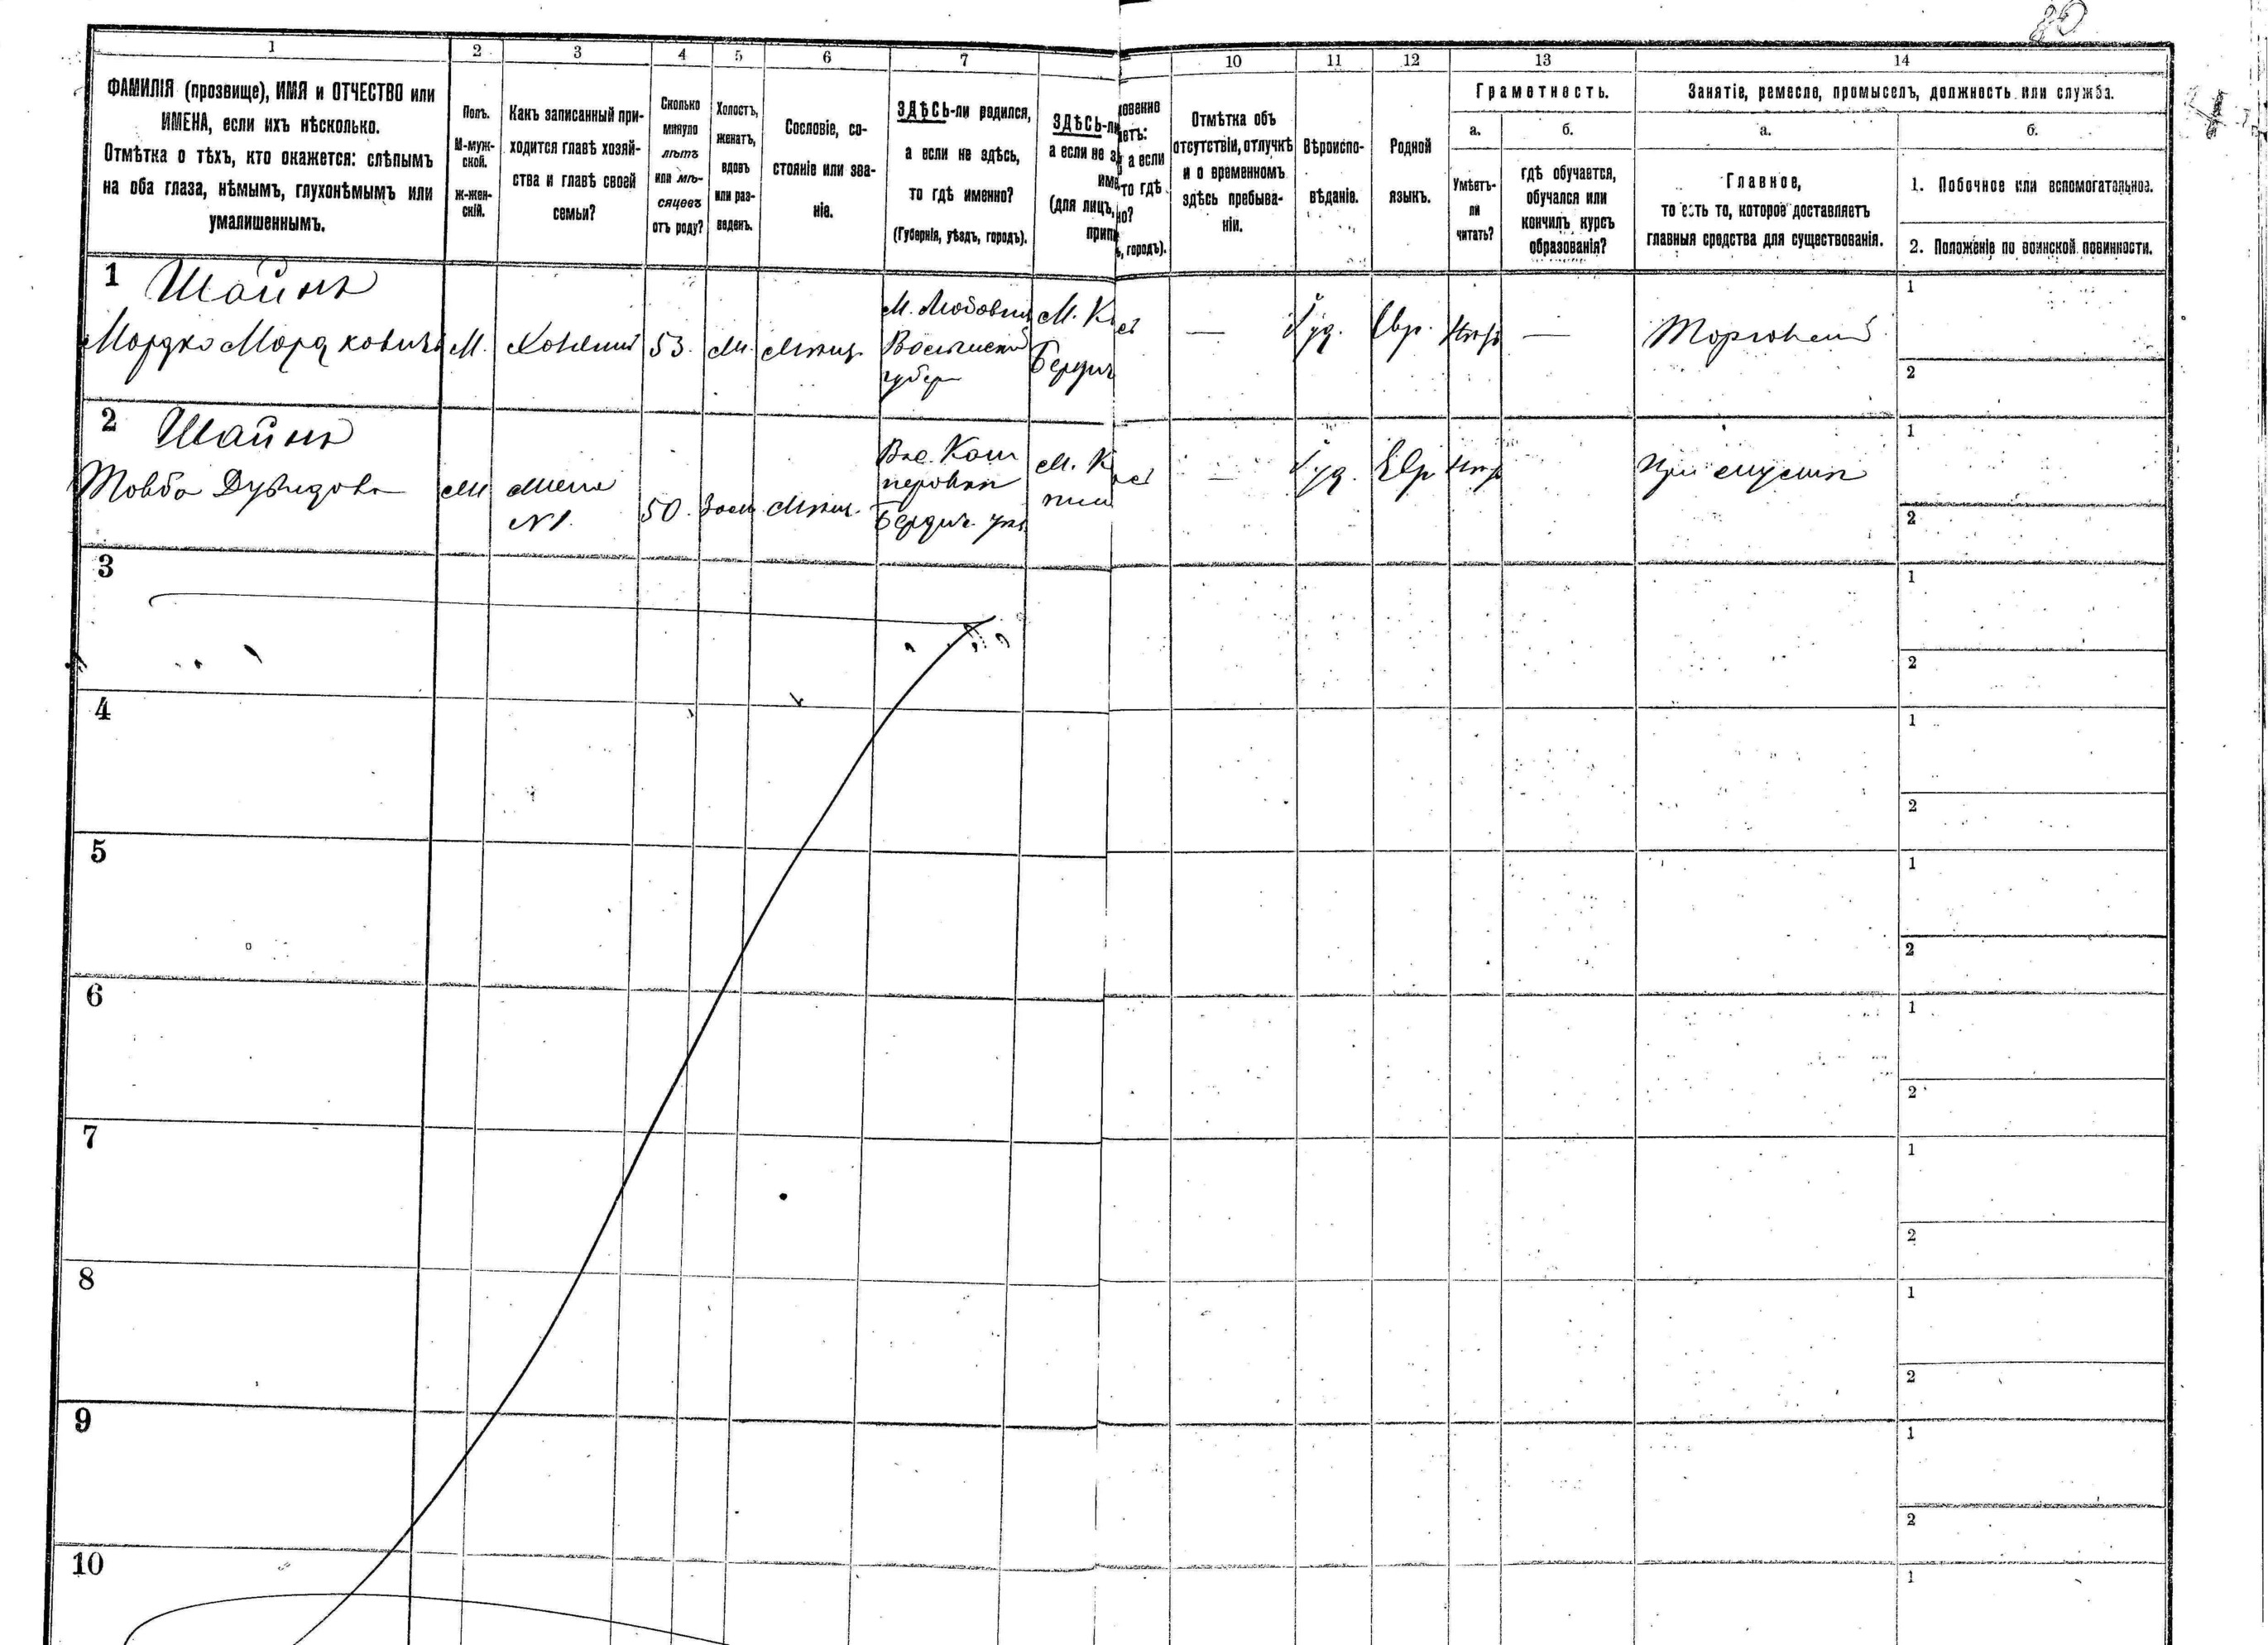 80
1 2 3 4 5 6 7 10 11 12 13 14
ФАМИЛІЯ (прозвище), ИМЯ и ОТЧЕСТВО или
ИМЕНА, если ихъ нѣсколько.
Отмѣтка о тѣхъ, кто окажется: слѣпымъ
на оба глаза, нѣмымъ, глухонѣмымъ или
умалишеннымъ.
Полъ.
М-муж-
ской.
ж-жен-
скій.
Какъ записанный при-
ходится главѣ хозяй-
ства и главѣ своей
семьи?
Сколько
минуло
лѣтъ
или мѣ-
сяцевъ
отъ роду?
Холостъ,
женатъ,
вдовъ
или раз-
веденъ.
Сословіе, со-
стояніе или зва-
ніе.
ЗДѢСЬ-ли родился,
а если не здѣсь,
то гдѣ именно?
(Губернія, уѣздъ, городъ).
ЗДѢСЬ-ли
а если не з
име
(для лицъ,
припи
ловенно
аетъ:
а если
то гдѣ
но?
ъ, городъ).
Отмѣтка объ
отсутствіи, отлучкѣ
и о временномъ
здѣсь пребыва-
ніи.
Вѣроиспо-
вѣданіе.
Родной
языкъ.
Грамотность.
а.
Умѣетъ-
ли
читать?
б.
гдѣ обучается,
обучался или
кончилъ курсъ
образованія?
Занятіе, ремесло, промыселъ, должность или служба.
а.
Главное,
то есть то, которое доставляетъ
главныя средства для существованія.
б.
1. Побочное или вспомогательное.
2. Положеніе по воинской повинности.
1 Шайнъ
Мордко Мордковичъ
М.
Хозяинъ
53.
М. Любович
Волынской
губер
М. К
Бердич
—
Іуд.
Евр.
—
Торговецъ
1
2
2 Шайнъ
Товба Дувидова
№ 1.
50.
Бердич. уѣз
М. К
—
Іуд.
Евр
При мужѣ
1
2
3
1
2
4
1
2
5
1
2
6
1
2
7
1
2
8
1
2
9
1
2
10
1